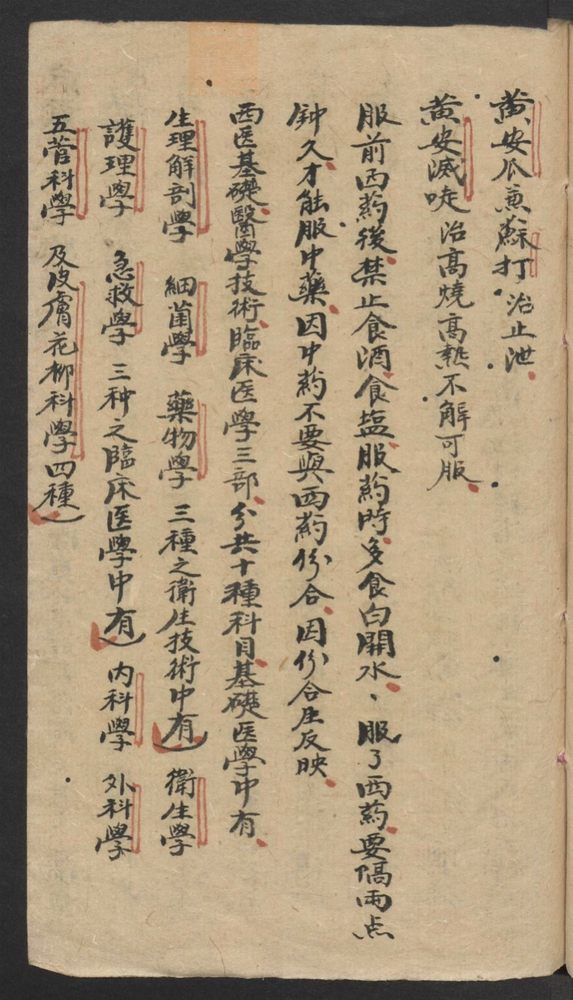 黄安瓜蒉蘇打治止泄
黄安滅唗治高燒高熱不解可服
服前西葯後禁止食酒食塩服葯時多食白開水、服了西葯要隔兩点
鈡久才能服中藥因中葯不要與西葯份合因份合圧反映
西医基礎醫學技術臨床医學三部分共十種科目基礎医學中有
生理解剖學 細菌學 藥物學 三種之衛生技術中有 衛生學
護理學 急救學 三种之臨床医學中有 内科學 外科學
五管科學 及皮膚花柳科學四種